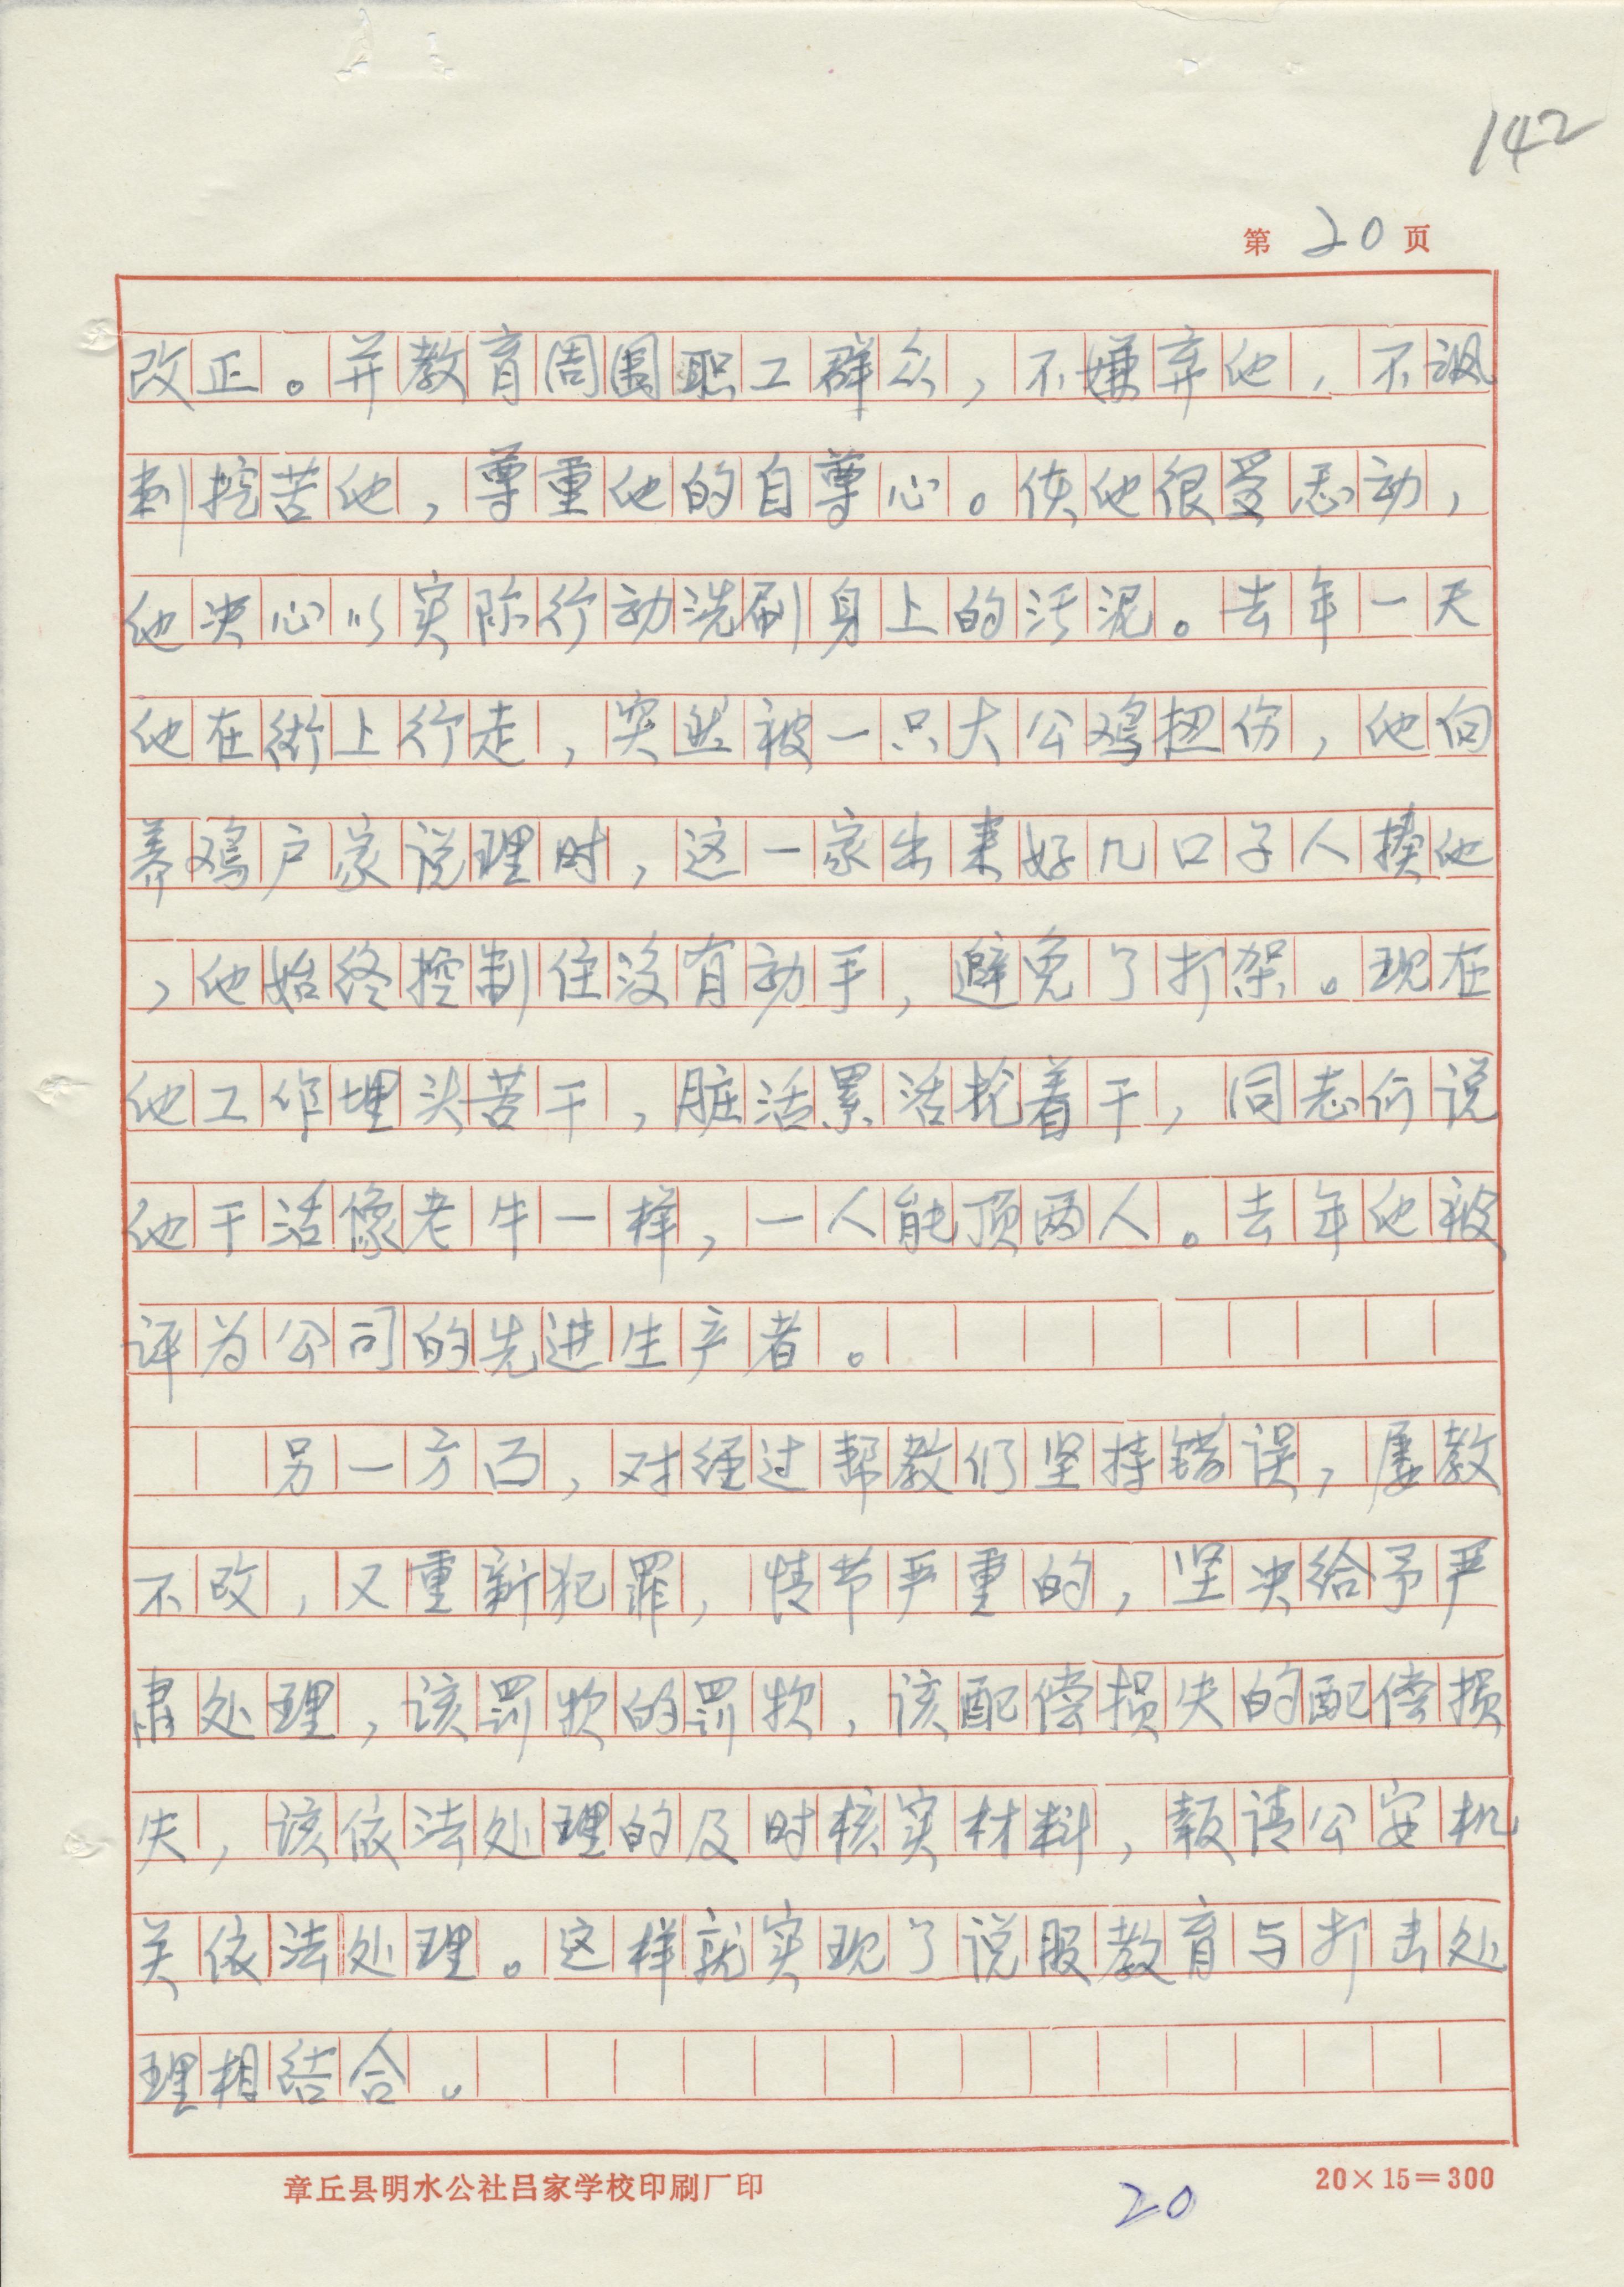 142
第 20 页
改正。并教育周围职工群众，不嫌弃他，不讽
刺挖苦他，尊重他的自尊心。使他很受感动，
他决心以实际行动洗刷身上的污泥。去年一天
他在街上行走，突然被一只大公鸡扭伤，他向
养鸡户家说理时，这一家出来好几口子人揍他
，他始终控制住没有动手，避免了打架。现在
他工作埋头苦干，脏活累活抢着干，同志们说
他干活像老牛一样，一人能顶两人。去年他被
评为公司的先进生产者。
另一方面，对经过帮教仍坚持错误，屡教
不改，又重新犯罪，情节严重的，坚决给予严
肃处理，该罚款的罚款，该配偿损失的配偿损
失，该依法处理的及时核实材料，报请公安机
关依法处理。这样就实现了说服教育与打击处
理相结合。
章丘县明水公社吕家学校印刷厂印
20
20×15＝300